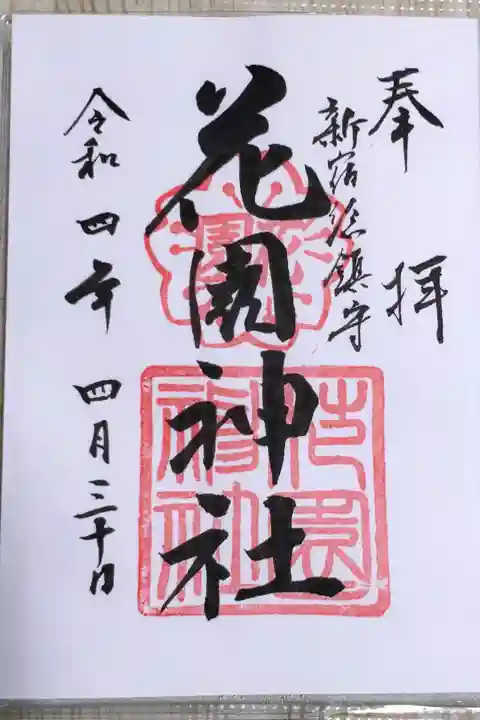 奉拝
新宿総鎮守
花園神社
花園神社
令和四年四月三十日